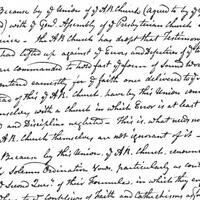 Because by y Union of y A.R. Church (Agreed to by y
) with y Genl. Assembly of y Presbyterian church
. y A.R. church has dropt that Testimony
had lifted up against y Errors and Defection of y
are commanded to hold fast y form of Sound Words
contend earnestly for y faith once delivered to y
of this y A.R. church have by this Union
with a church in which Error is at least
and Discipline neglected. This is what needs no
A.R. church themselves are not ignorant of it
Because by this Union, y A.R. Church,
Solemn Ordination Vows, particularly as con
y Second Quest. of their Formulas, in which they
to y Confession of Faith and Catechisms